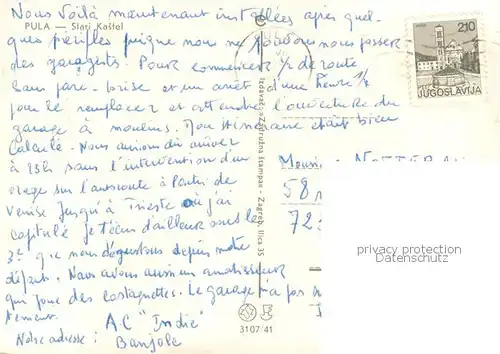 Nous Voilà maintenant installés après quel-
PULA — Stari Kaštel
ques péripéties puisque nous ne pouvons nous passer
des garagistes. Pour commencer 1/2 de route
sans pare-brise et un arrêt d'une heure 1/2
pour le remplacer et attendre l'ouverture du
garage à moulins. Mon itinéraire était bien
calculé. Nous aurions dû arriver
à 23h sans l'intervention d'un
orage sur l'autoroute à Partir de
Venise Jusqu'à Trieste où j'ai
capitulé. Je t'écris d'ailleurs sous les
3e que nous dégustons depuis notre
départ. Nous avons aussi un amortisseur
qui joue des castagnettes. Le garage n'a pas
Notre adresse : A.C "Indie"
Banjole
Izdavačka Zadružna štampa - Zagreb, Ilica 35
3107/41
2,10
JUGOSLAVIJA
Monsieur
58
72
privacy protection
Datenschutz